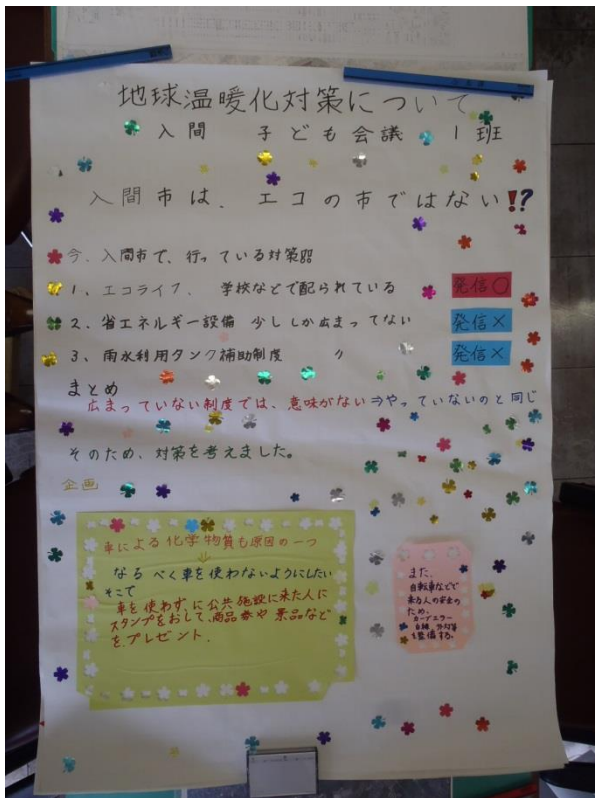 地球温暖化対策について
入間 子ども会議 1班
入間市は、エコの市ではない!?
今、入間市で、行っている対策
1、エコライフ、 学校などで配られている 発信○
2、省エネルギー設備 少ししか広まってない 発信×
3、雨水利用タンク補助制度 〃 発信×
まとめ
広まっていない制度では、意味がない⇒やっていないのと同じ
そのため、対策を考えました。
企画
車による化学物質も原因の一つ
↓
なるべく車を使わないようにしたい
そこで
車を使わずに公共施設に来た人に
スタンプをおして、商品券や景品など
を、プレゼント、
また、
自転車などで
来る人の安全の
ため、
カーブミラー
を整備する。